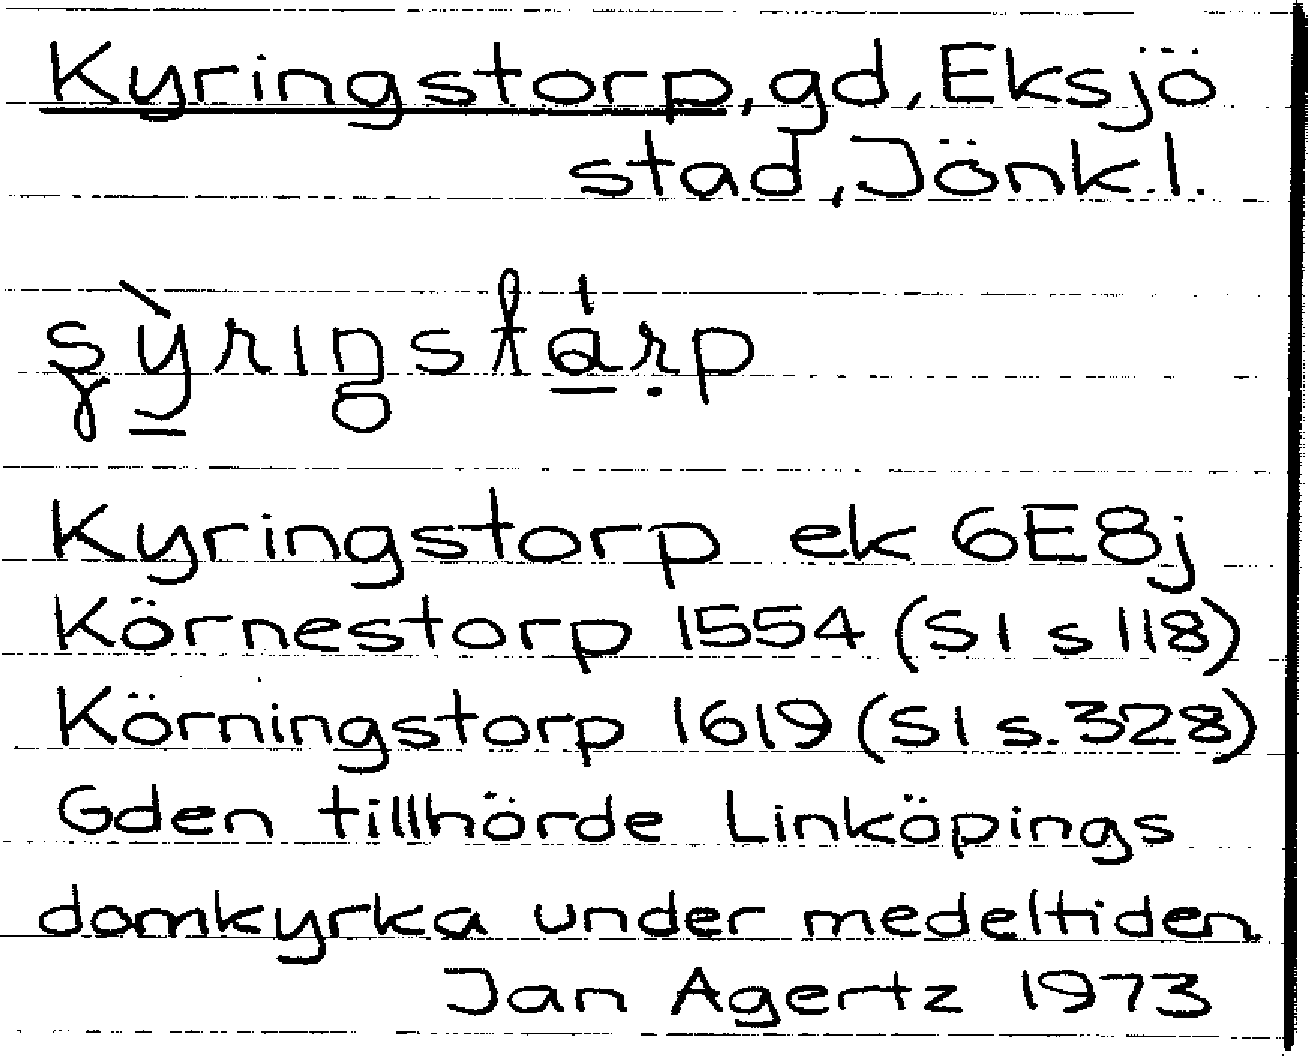 Kyringstorp, gd, Eksjö
stad, Jönk.l.
Kyringstorp ek 6E8j
Körnestorp 1554 (S1 s 118)
Körningstorp 1619 (S1 s. 328)
Gden tillhörde Linköpings
domkyrka under medeltiden
Jan Agertz 1973